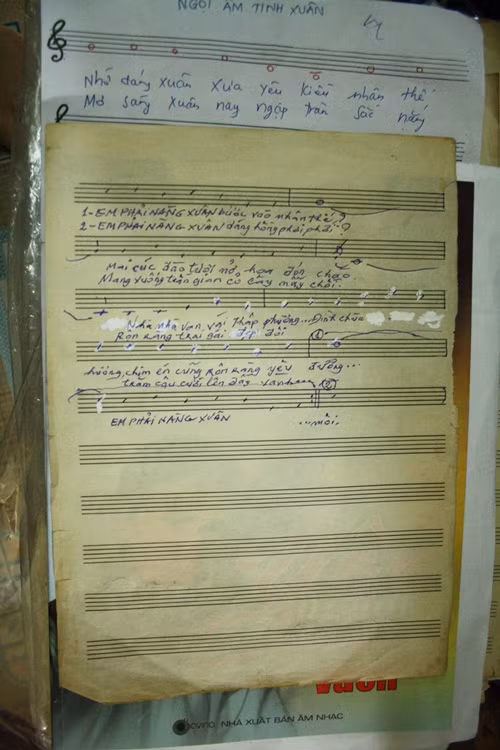 NGỢI ÂM TÌNH XUÂN
Nhớ dáng xuân xưa yêu kiều nhân thế
Mơ sang xuân nay ngập tràn sắc nắng
1- EM PHẢI NÀNG XUÂN bước vào nhân thế?
2- EM PHẢI NÀNG XUÂN dáng hồng phơi phới?
Mai cúc đào tươi nở, hoa đón chào
Mang xuống trần gian cỏ cây nảy chồi.
Nhã nhạ vạn vật thập phương... Đình chùa
Rộn ràng trai gái đẹp đôi
hương, chim én cũng rộn ràng yêu đương...
trầm câu cười lên đây
EM PHẢI NÀNG XUÂN ...môi.
NHÀ XUẤT BẢN ÂM NHẠC